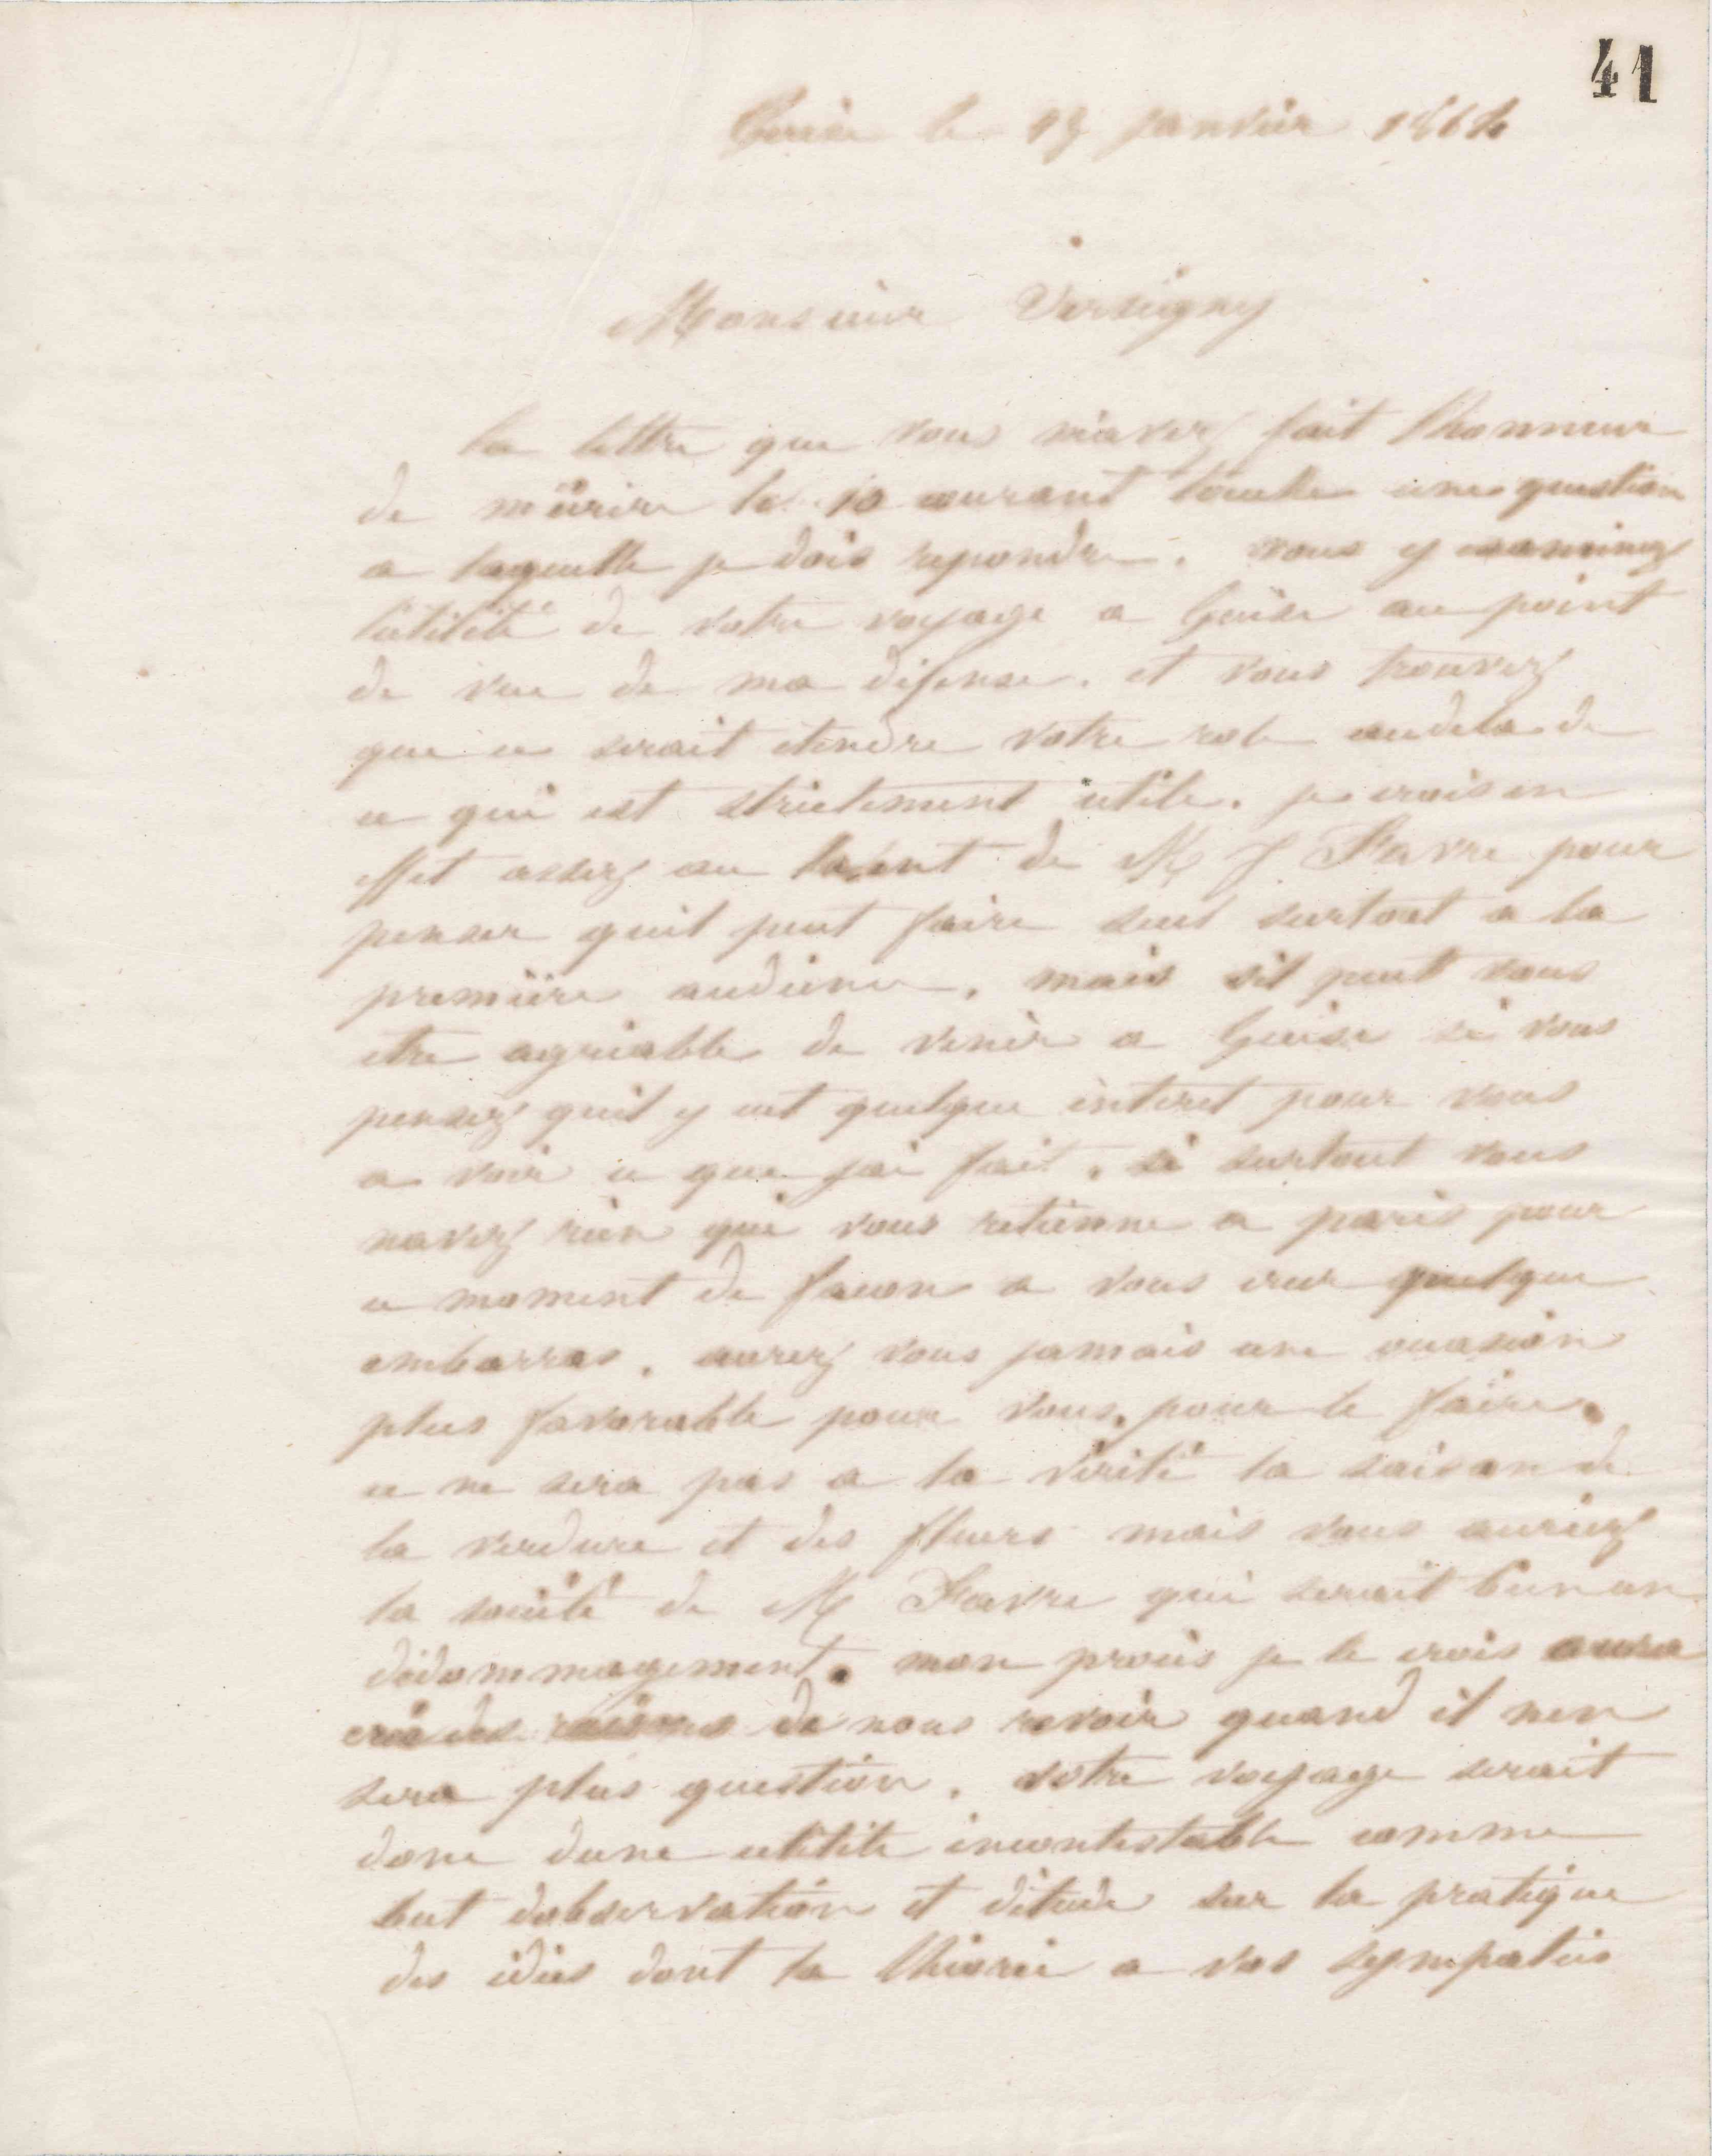 41
Guise le janvier 1864
Monsieur Versigny
La lettre que vous m'avez fait l'honneur
de m'écrire le 10 courant touche une question
a laquelle je dois repondre. vous y examinez
lutilité de votre voyage a Guise au point
de vue de ma defense. et vous trouvez
que ce serait etendre votre role audela de
ce qui est strictement utile. je crois en
effet assez au talent de M J Favre pour
penser quil peut faire seul surtout a la
premiere audience. mais sil peut vous
etre agreable de venir a Guise si vous
pensez quil y ait quelque interet pour vous
a voir ce que jai fait. si surtout vous
navez rien qui vous retienne a paris pour
ce moment de facon a vous creer quelque
embarras. aurez vous jamais une occasion
plus favorable pour vous, pour le faire.
ce ne sera pas a la vérité la saison de
la verdure et des fleurs mais vous auriez
la société de M Favre qui serait bien un
dédommagement. mon procès je le crois aura
créé des raisons de nous revoir quand il nen
sera plus question. votre voyage serait
donc dune utilite incontestable comme
but dobservation et détude sur la pratique
des idées dont la théorie a vos sympaties